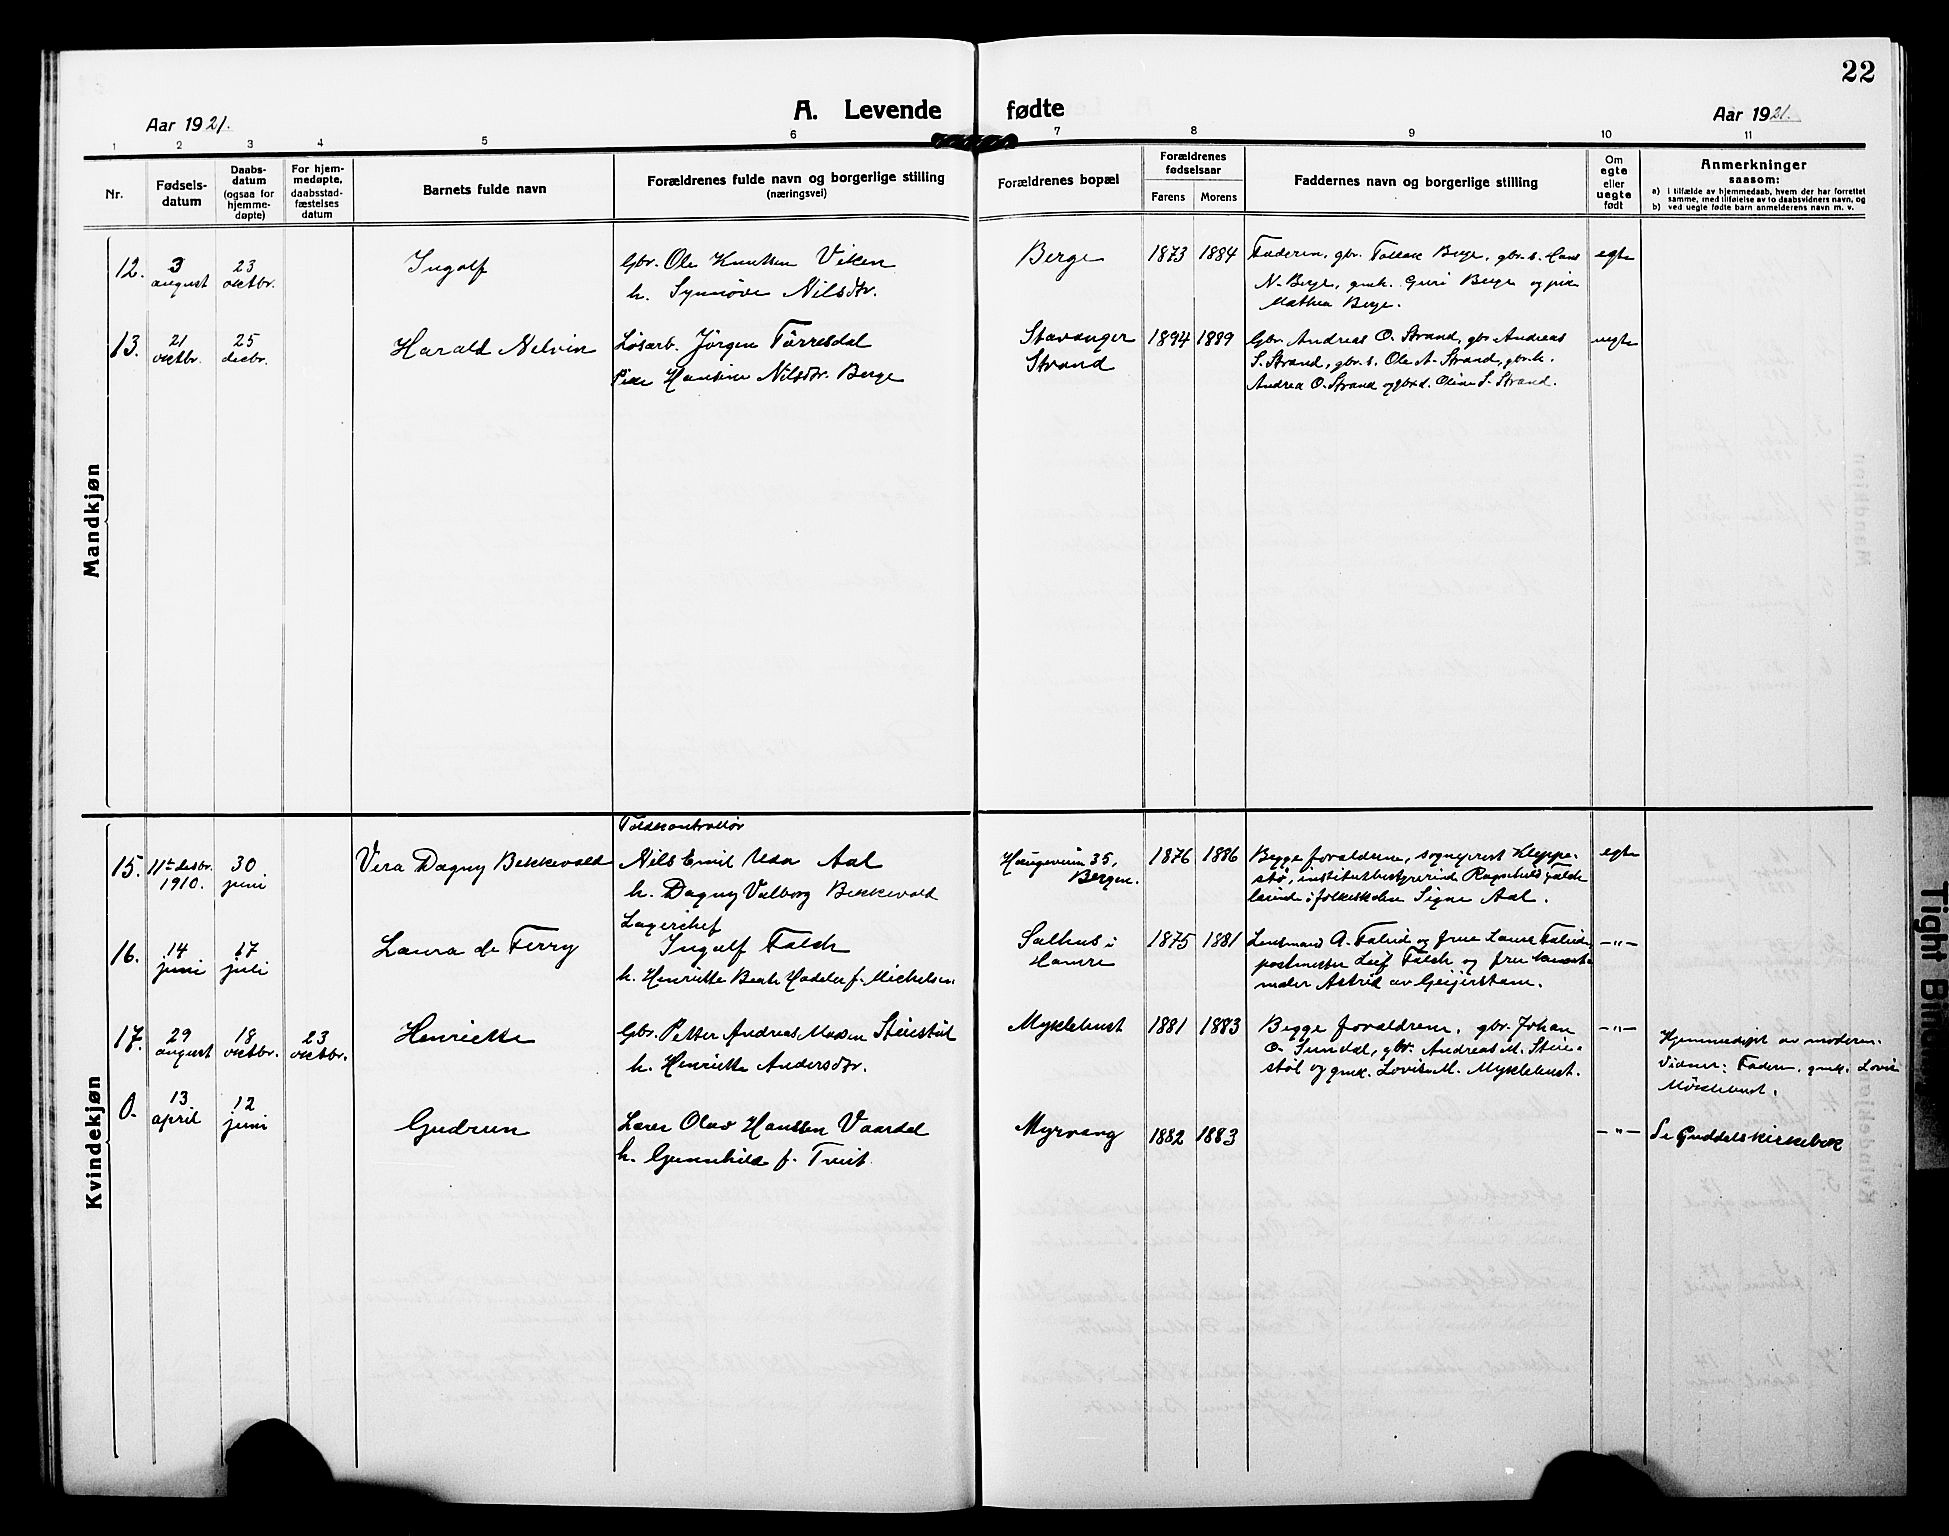 22
A. Levende fødte
Aar 1921.
Aar 1921.
1 2 3 4 5 6 7 8 9 10 11
Nr.
Fødsels-
datum
Daabs-
datum
(ogsaa for
hjemme-
døpte)
For hjem-
medøpte,
daabsstad-
fæstelses
datum
Barnets fulde navn
Forældrenes fulde navn og borgerlige stilling
(næringsvei)
Forældrenes bopæl
Forældrenes
fødselsaar
Farens Morens
Faddernes navn og borgerlige stilling
Om
egte
eller
uegte
født
Anmerkninger
saasom:
a) i tilfælde av hjemmedaab, hvem der har forrettet
samme, med tilføielse av to daabsvidners navn, og
b) ved uegte fødte barn anmelderens navn m. v.
Mandkjøn
12. 3 august 23 oktbr. Ingolf
Gbr. Ole Knutsen Viken
h. Synnøve Nilsdtr.
Berge 1873 1884
Faderen, gbr. Tollak Berge, gbr. s. Hans
N. Berge, gmk. Guri Berge og pike
Mathea Berge.
egte
13. 21 oktbr. 25 decbr. Harald Nelvin
Løsarb. Jørgen Tørresdal
Pike Hansine Nilsdtr. Berge
Stavanger
Strand
1894 1889
Gbr. Andreas O. Strand, gbr. Andreas
S. Strand, gbr. s. Ole A. Strand, gbr. h.
Andrea O. Strand og gbr. d. Oline S. Strand.
uegte
Kvindekjøn
15. 11te desbr. 1910. 30 juni Vera Dagny Bekkevold
Toldkontrollør
Nils Emil Aal
h. Dagny Valborg Bekkevold
Haugeveien 35,
Bergen.
1876 1886
Begge forældrene, sogneprest Kleppe-
stø, institutbestyrerinde Ragnhild
lærerinde i folkeskolen Signe Aal.
egte
16. 14 juni 17 juli Laura de Ferry
Lagerchef
Ingolf Falch
h. Henriette Beate f. Michelsen
Salhus i
Hamre
1875 1881
Lensmand A. og frue Laura
postmester Leif Falch og frue
maler Astrid av Geijerstam.
—"—
17. 29 august 18 oktbr. 23 oktbr. Henriette
Gbr. Petter Andreas Madsen Steinstøl
h. Henriette Andersdtr.
Myklebust 1881 1883
Begge forældrene, gbr. Johan
O. Sundal, gbr. Andreas M. Stein-
støl og gmk. Lovise M. Myklebust.
—"—
Hjemmedøpt av moderen.
Vidner: Faderen, gmk. Lovise
Myklebust.
0. 13 april 12 juni Gudrun
Lærer Olav Hanssen Vaardal
h. Gunnhild f. Tveit
Myrvang 1882 1883
—"—
Se Guddals kirkebok
Tight Bind